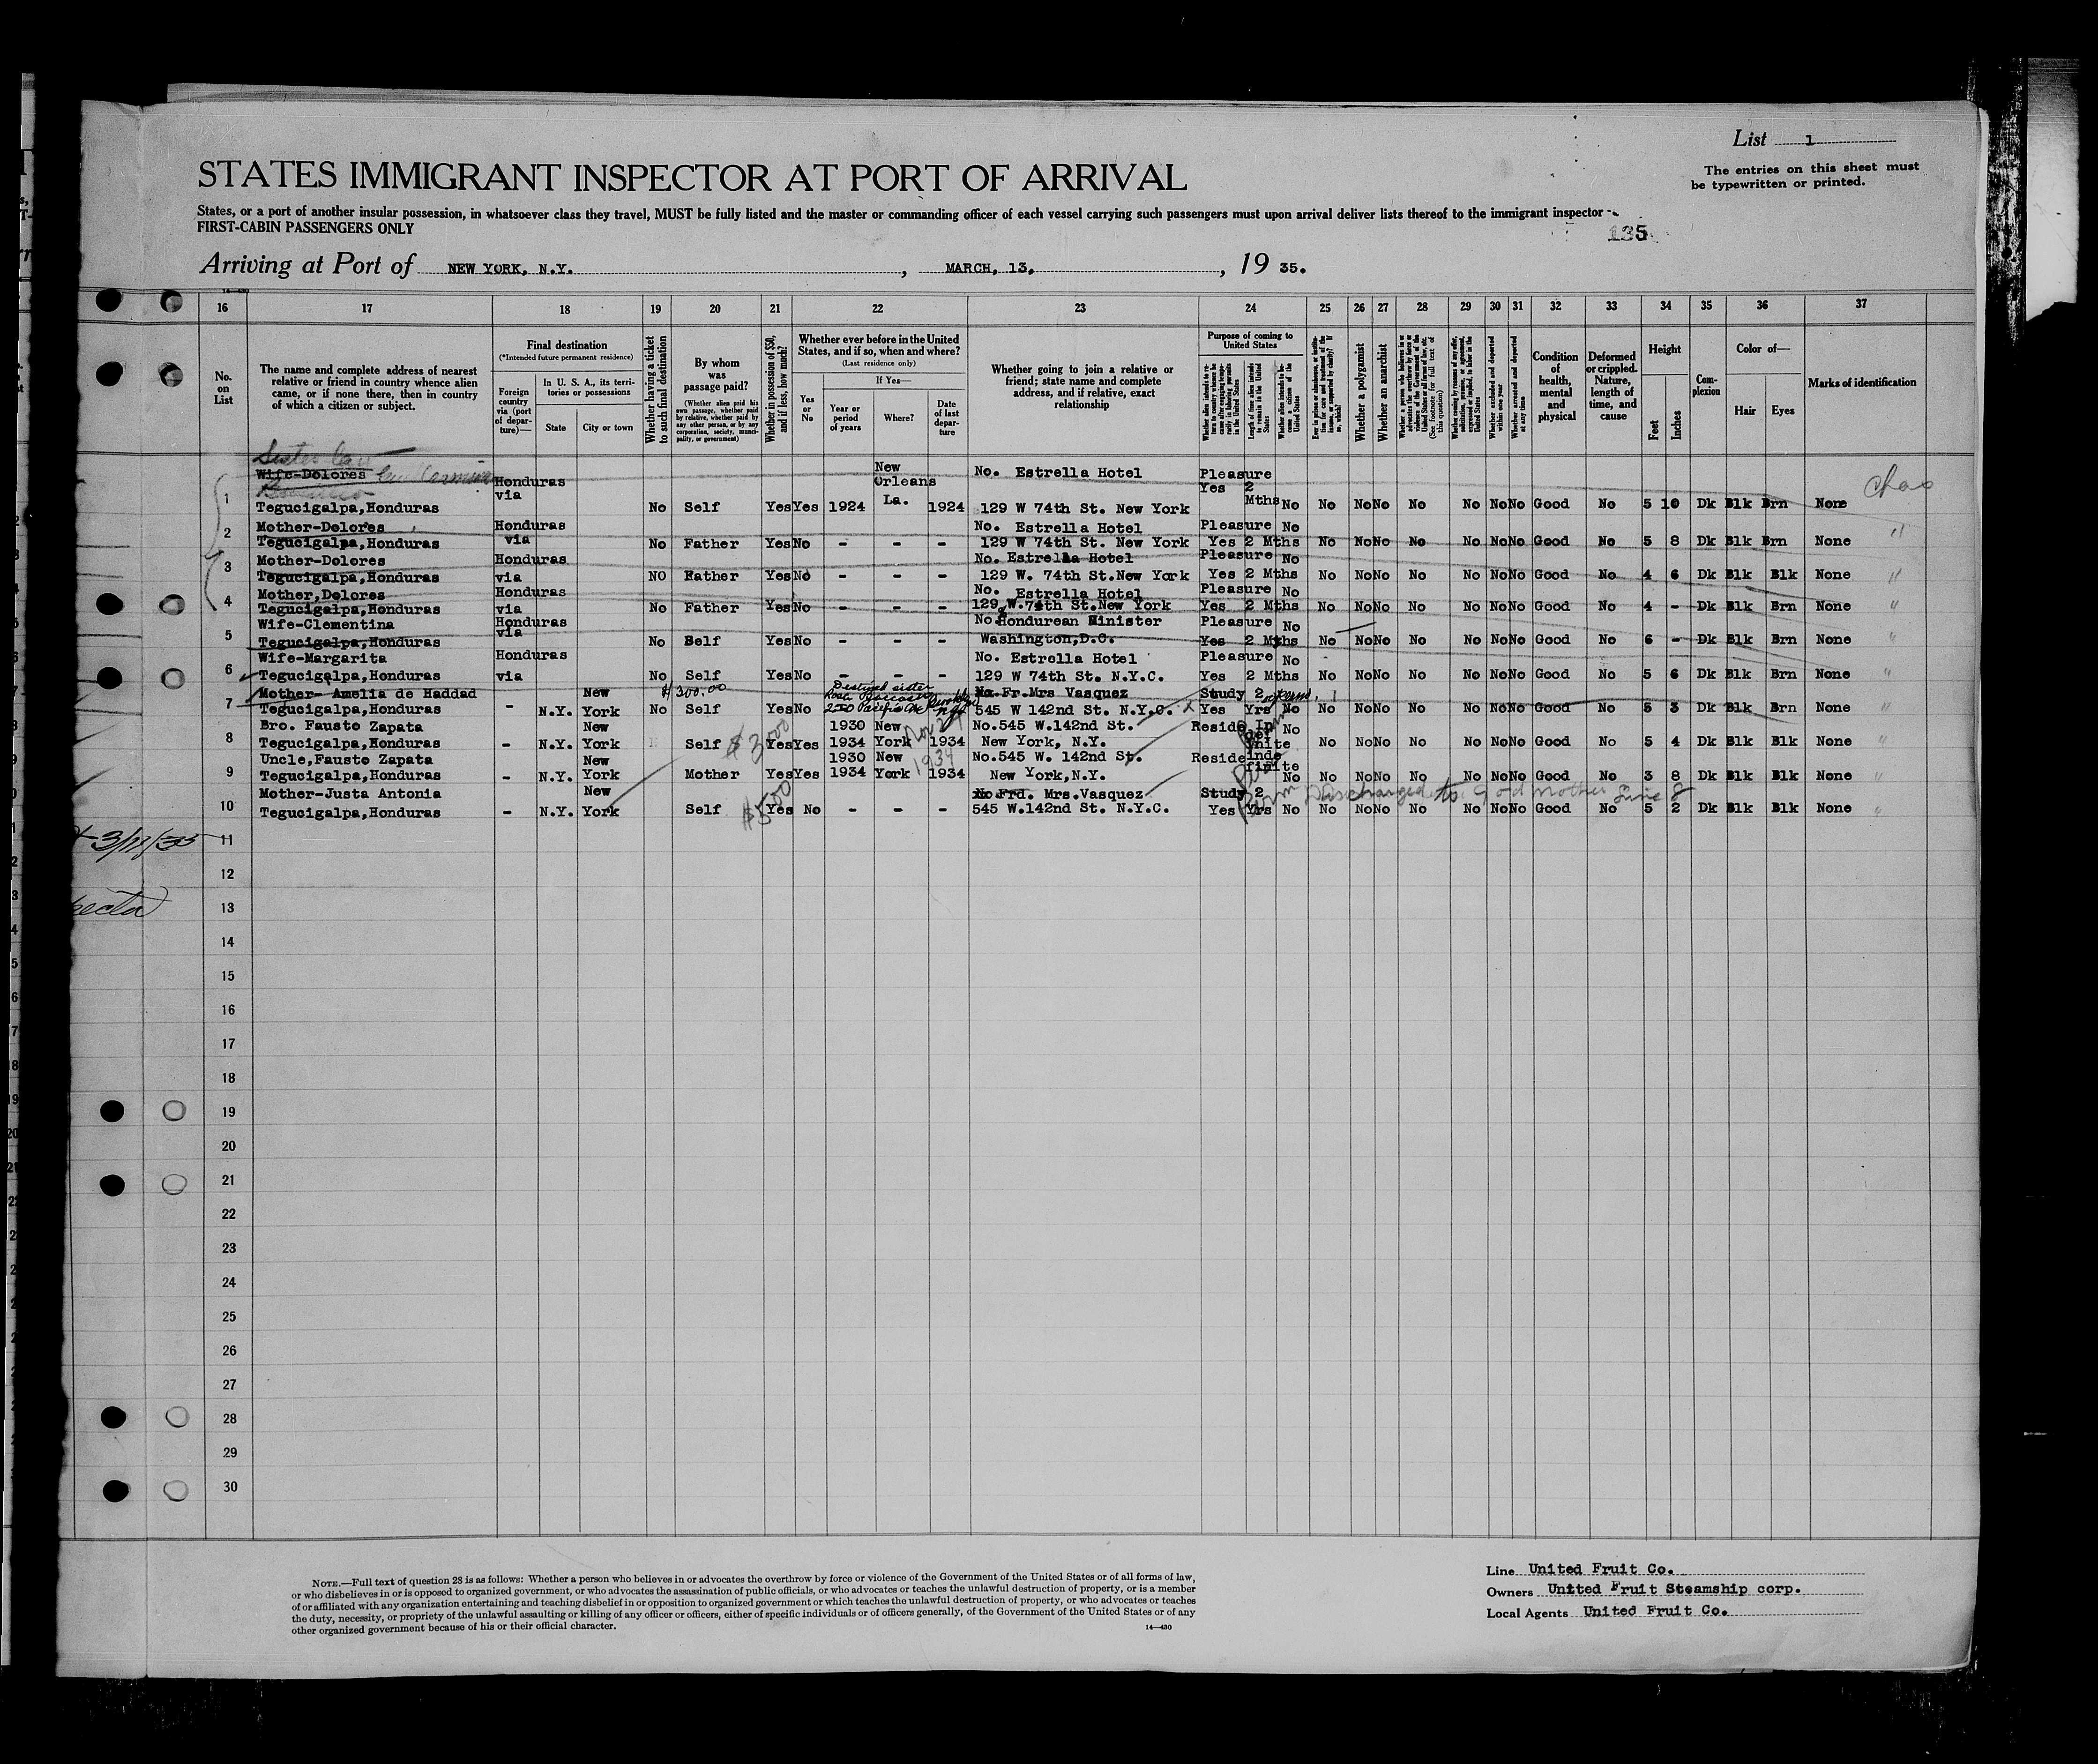 List 1
The entries on this sheet must
be typewritten or printed.
STATES IMMIGRANT INSPECTOR AT PORT OF ARRIVAL
States, or a port of another insular possession, in whatsoever class they travel, MUST be fully listed and the master or commanding officer of each vessel carrying such passengers must upon arrival deliver lists thereof to the immigrant inspector
FIRST-CABIN PASSENGERS ONLY
135
Arriving at Port of NEW YORK, N.Y. , MARCH, 13, , 19 35.
16 17 18 19 20 21 22 23 24 25 26 27 28 29 30 31 32 33 34 35 36 37
No. on List
The name and complete address of nearest relative or friend in country whence alien came, or if none there, then in country of which a citizen or subject.
Final destination
(*Intended future permanent residence)
Foreign country via (port of departure)—
In U. S. A., its territories or possessions
State
City or town
Whether having a ticket to such final destination
By whom was passage paid?
(Whether alien paid his own passage, whether paid by relative, whether paid by any other person, or by any corporation, society, municipality, or government)
Whether in possession of $50, and if less, how much?
Whether ever before in the United States, and if so, when and where?
(Last residence only)
Yes or No
If Yes—
Year or period of years
Where?
Date of last departure
Whether going to join a relative or friend; state name and complete address, and if relative, exact relationship
Purpose of coming to United States
Whether a polygamist
Whether an anarchist
Condition of health, mental and physical
Deformed or crippled. Nature, length of time, and cause
Height
Feet
Inches
Complexion
Color of—
Hair
Eyes
Marks of identification
Wife-Dolores Honduras New Orleans No. Estrella Hotel Pleasure
1 Tegucigalpa,Honduras via No Self Yes Yes 1924 La. 1924 129 W 74th St. New York Yes 2 Mths No No No No No No No No Good No 5 10 Dk Blk Brn None
Mother-Dolores Honduras No. Estrella Hotel Pleasure No
2 Tegucigalpa,Honduras via No Father Yes No - - - 129 W 74th St. New York Yes 2 Mths No No No No No No No Good No 5 8 Dk Blk Brn None "
Mother-Dolores Honduras No. Estrella Hotel Pleasure No
3 Tegucigalpa,Honduras via NO Father Yes No - - - 129 W. 74th St.New York Yes 2 Mths No No No No No No No Good No 4 6 Dk Blk Blk None "
Mother,Dolores Honduras No. Estrella Hotel Pleasure No
4 Tegucigalpa,Honduras via No Father Yes No - - - 129 W.74th St.New York Yes 2 Mths No No No No No No No Good No 4 - Dk Blk Brn None "
Wife-Clementina Honduras No Hondurean Minister Pleasure No
5 Tegucigalpa,Honduras via No Self Yes No - - - Washington,D.C. Yes 2 Mths No No No No No No No Good No 6 - Dk Blk Brn None "
Wife-Margarita Honduras No. Estrella Hotel Pleasure No
6 Tegucigalpa,Honduras via No Self Yes No - - - 129 W 74th St. N.Y.C. Yes 2 Mths No No No No No No No Good No 5 6 Dk Blk Brn None "
Mother- Amelia de Haddad New $300.00 Destined sister No.Fr.Mrs Vasquez Study 2
7 Tegucigalpa,Honduras - N.Y. York No Self Yes No 545 W 142nd St. N.Y.C. Yes Yrs No No No No No No No No Good No 5 3 Dk Blk Brn None "
Bro. Fausto Zapata New 1930 New No.545 W.142nd St. Reside In No
8 Tegucigalpa,Honduras - N.Y. York Self Yes Yes 1934 York 1934 New York, N.Y. definite No No No No No No No Good No 5 4 Dk Blk Blk None "
Uncle,Fausto Zapata New 1930 New No.545 W. 142nd St. Reside inde
9 Tegucigalpa,Honduras - N.Y. York Mother Yes Yes 1934 York 1934 New York,N.Y. finite No No No No No No No No Good No 3 8 Dk Blk Blk None "
Mother-Justa Antonia New No Frd. Mrs.Vasquez Study 2 Discharged to God mother
10 Tegucigalpa,Honduras - N.Y. York Self $500 Yes No - - - 545 W.142nd St. N.Y.C. Yes Yrs No No No No No No No No Good No 5 2 Dk Blk Blk None "
11
12
13
14
15
16
17
18
19
20
21
22
23
24
25
26
27
28
29
30
NOTE.—Full text of question 28 is as follows: Whether a person who believes in or advocates the overthrow by force or violence of the Government of the United States or of all forms of law,
or who disbelieves in or is opposed to organized government, or who advocates the assassination of public officials, or who advocates or teaches the unlawful destruction of property, or is a member
of or affiliated with any organization entertaining and teaching disbelief in or opposition to organized government or which teaches the unlawful destruction of property, or who advocates or teaches
the duty, necessity, or propriety of the unlawful assaulting or killing of any officer or officers, either of specific individuals or of officers generally, of the Government of the United States or of any
other organized government because of his or their official character.
14—430
Line United Fruit Co.
Owners United Fruit Steamship corp.
Local Agents United Fruit Co.